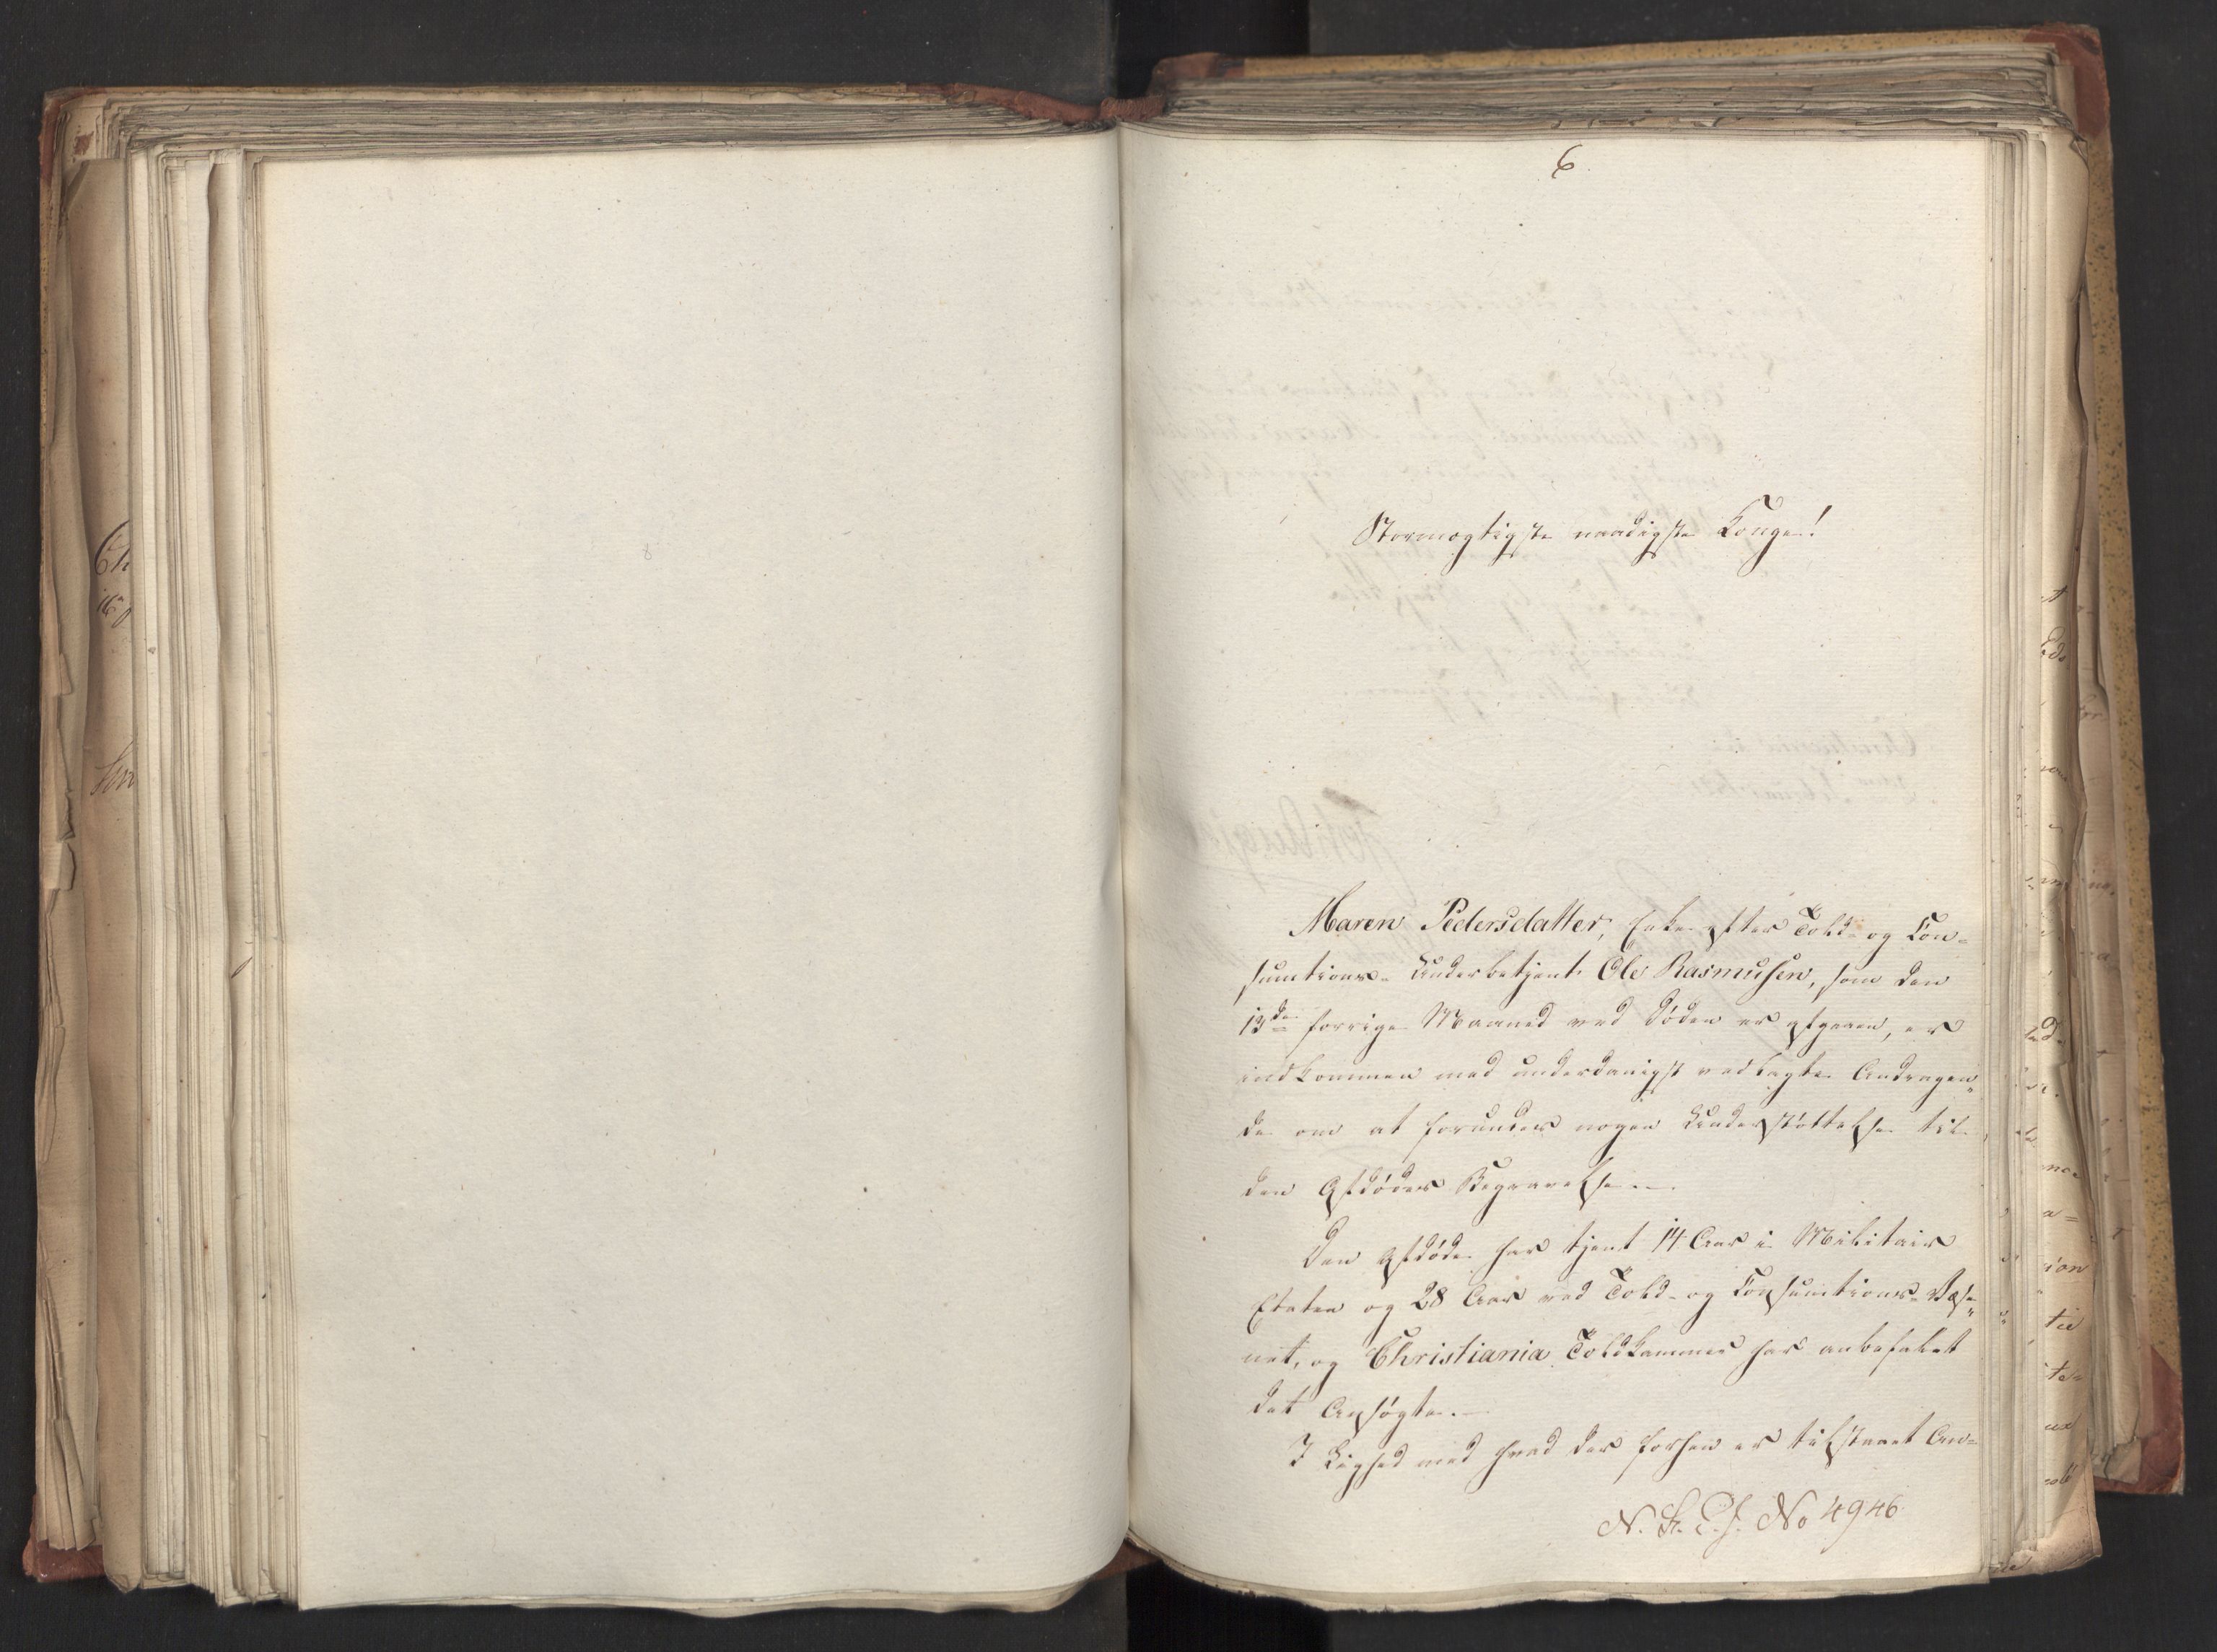 6.
Stormægtigste naadigste Konge!
Maren Pedersdatter, Enke efter Told- og Con=
sumtions- Underbetjent Ole Rasmusen, som den
13de forrige Maaned ved Døden er afgaaen, er
indkommen med underdanigst vedlagte Andragen=
de om at forundes nogen Understøttelse til
den Afdødes Begravelse.—
Den Afdøde har tjent 14 Aar i Militair
Etaten og 28 Aar ved Told- og Consumtions-Væse=
net, og Christiania Toldkammer har anbefalet
det Ansøgte.—
I Lighed med hvad der forhen er tilstaaet An=
N. St. E. J. No 4946